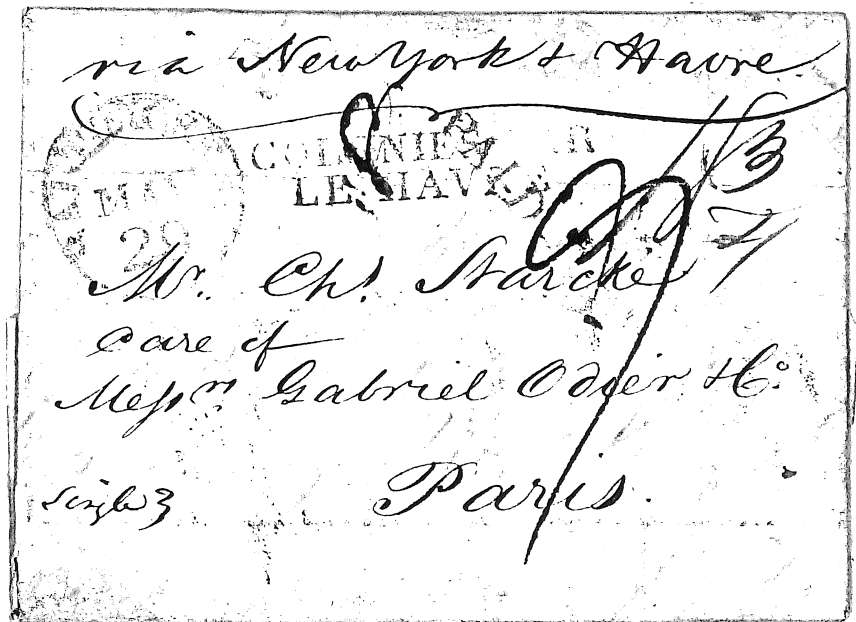 via New York & Havre.
COLONIES PAR
LE HAVRE
PAID
29
Mr. Chs Starcke
Care of
Messrs Gabriel Odier & Co.
Paris.
Single